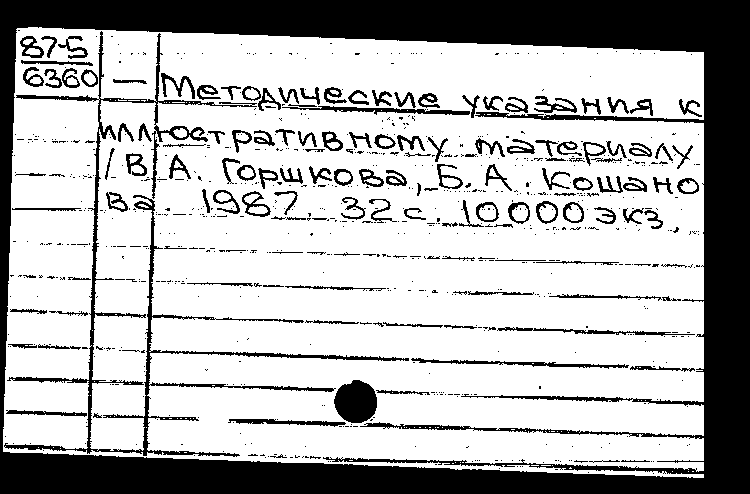 87-5
6360 — Методические указания к
иллюстративному материалу
/ В.А. Горшкова, Б.А. Кошано
ва. 1987. 32 с. 10000 экз,